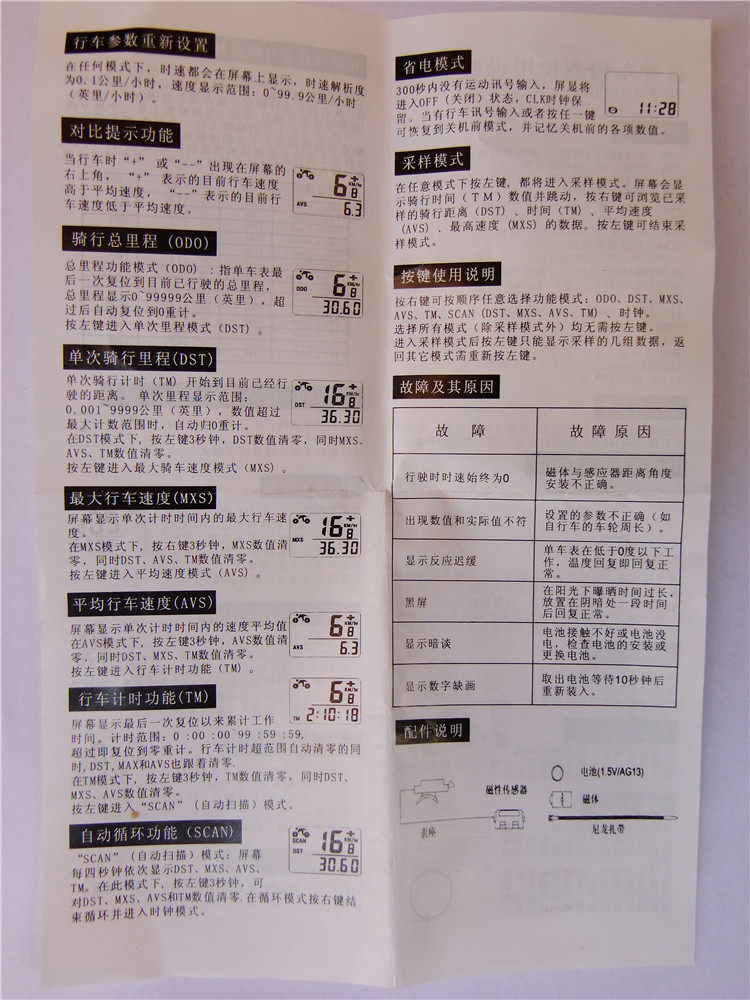 行车参数重新设置
在任何模式下，时速都会在屏幕上显示，时速解析度
为0.1公里/小时，速度显示范围：0~99.9公里/小时
（英里/小时）。
对比提示功能
当行车时“+” 或“--”出现在屏幕的
右上角， “+” 表示的目前行车速度
高于平均速度， “--” 表示的目前行
车速度低于平均速度。
AVS
6.3
骑行总里程 (ODO)
总里程功能模式（ODO）：指单车表最
后一次复位到目前已行驶的总里程，
总里程显示0~99999公里（英里），超
过后自动复位到0重计。
按左键进入单次里程模式（DST）。
ODO
30.60
单次骑行里程(DST)
单次骑行计时（TM）开始到目前已经行
驶的距离。 单次里程显示范围：
0.001~9999公里（英里），数值超过
最大计数范围时，自动归0重计。
在DST模式下，按左键3秒钟，DST数值清零，同时MXS、
AVS、TM数值清零。
按左键进入最大骑车速度模式（MXS）。
DST
36.30
最大行车速度(MXS)
屏幕显示单次计时时间内的最大行车速
度。
在MXS模式下，按右键3秒钟，MXS数值清
零，同时DST、AVS、TM数值清零。
按左键进入平均速度模式（AVS）。
MXS
36.30
平均行车速度(AVS)
屏幕显示单次计时时间内的速度平均值
在AVS模式下，按左键3秒钟，AVS数值清
零，同时DST、MXS、TM数值清零。
按左键进入行车计时功能（TM）。
AVS
6.3
行车计时功能(TM)
屏幕显示最后一次复位以来累计工作
时间。计时范围：0 :00 :00~99 :59 :59,
超过即复位到零重计。行车计时超范围自动清零的同
时, DST, MAX和AVS也跟着清零.
在TM模式下，按左键3秒钟，TM数值清零，同时DST、
MXS、AVS数值清零。
按左键进入“SCAN”（自动扫描）模式。
TM
2:10:18
自动循环功能 (SCAN)
“SCAN”（自动扫描）模式：屏幕
每四秒钟依次显示DST、MXS、AVS、
TM。在此模式下，按左键3秒钟，可
对DST、MXS、AVS和TM数值清零.在循环模式按右键结
束循环并进入时钟模式。
SCAN
DST
30.60
省电模式
300秒内没有运动讯号输入，屏显将
进入OFF（关闭）状态，CLK时钟保
留。当有行车讯号输入或者按任一键
可恢复到关机前模式，并记忆关机前的各项数值。
11:28
采样模式
在任意模式下按左键，都将进入采样模式。屏幕会显
示骑行时间（ＴＭ）数值并跳动，按右键可浏览已采
样的骑行距离（DST）、时间（TM）、平均速度
(AVS) 、最高速度（MXS）的数据。按左键可结束采
样模式。
按键使用说明
按右键可按顺序任意选择功能模式：ODO、DST、MXS、
AVS、TM、SCAN（DST、MXS、AVS、TM）、时钟。
选择所有模式（除采样模式外）均无需按左键。
进入采样模式后按左键只能显示采样的几组数据，返
回其它模式需重新按左键。
故障及其原因
故 障
故障原因
行驶时时速始终为0
磁体与感应器距离角度
安装不正确。
出现数值和实际值不符
设置的参数不正确（如
自行车的车轮周长）。
显示反应迟缓
单车表在低于0度以下工
作，温度回复即回复正
常。
黑屏
在阳光下曝晒时间过长，
放置在阴暗处一段时间
后回复正常。
显示暗谈
电池接触不好或电池没
电，检查电池的安装或
更换电池。
显示数字缺画
取出电池等待10秒钟后
重新装入。
配件说明
表座
磁性传感器
电池(1.5V/AG13)
磁体
尼龙扎带